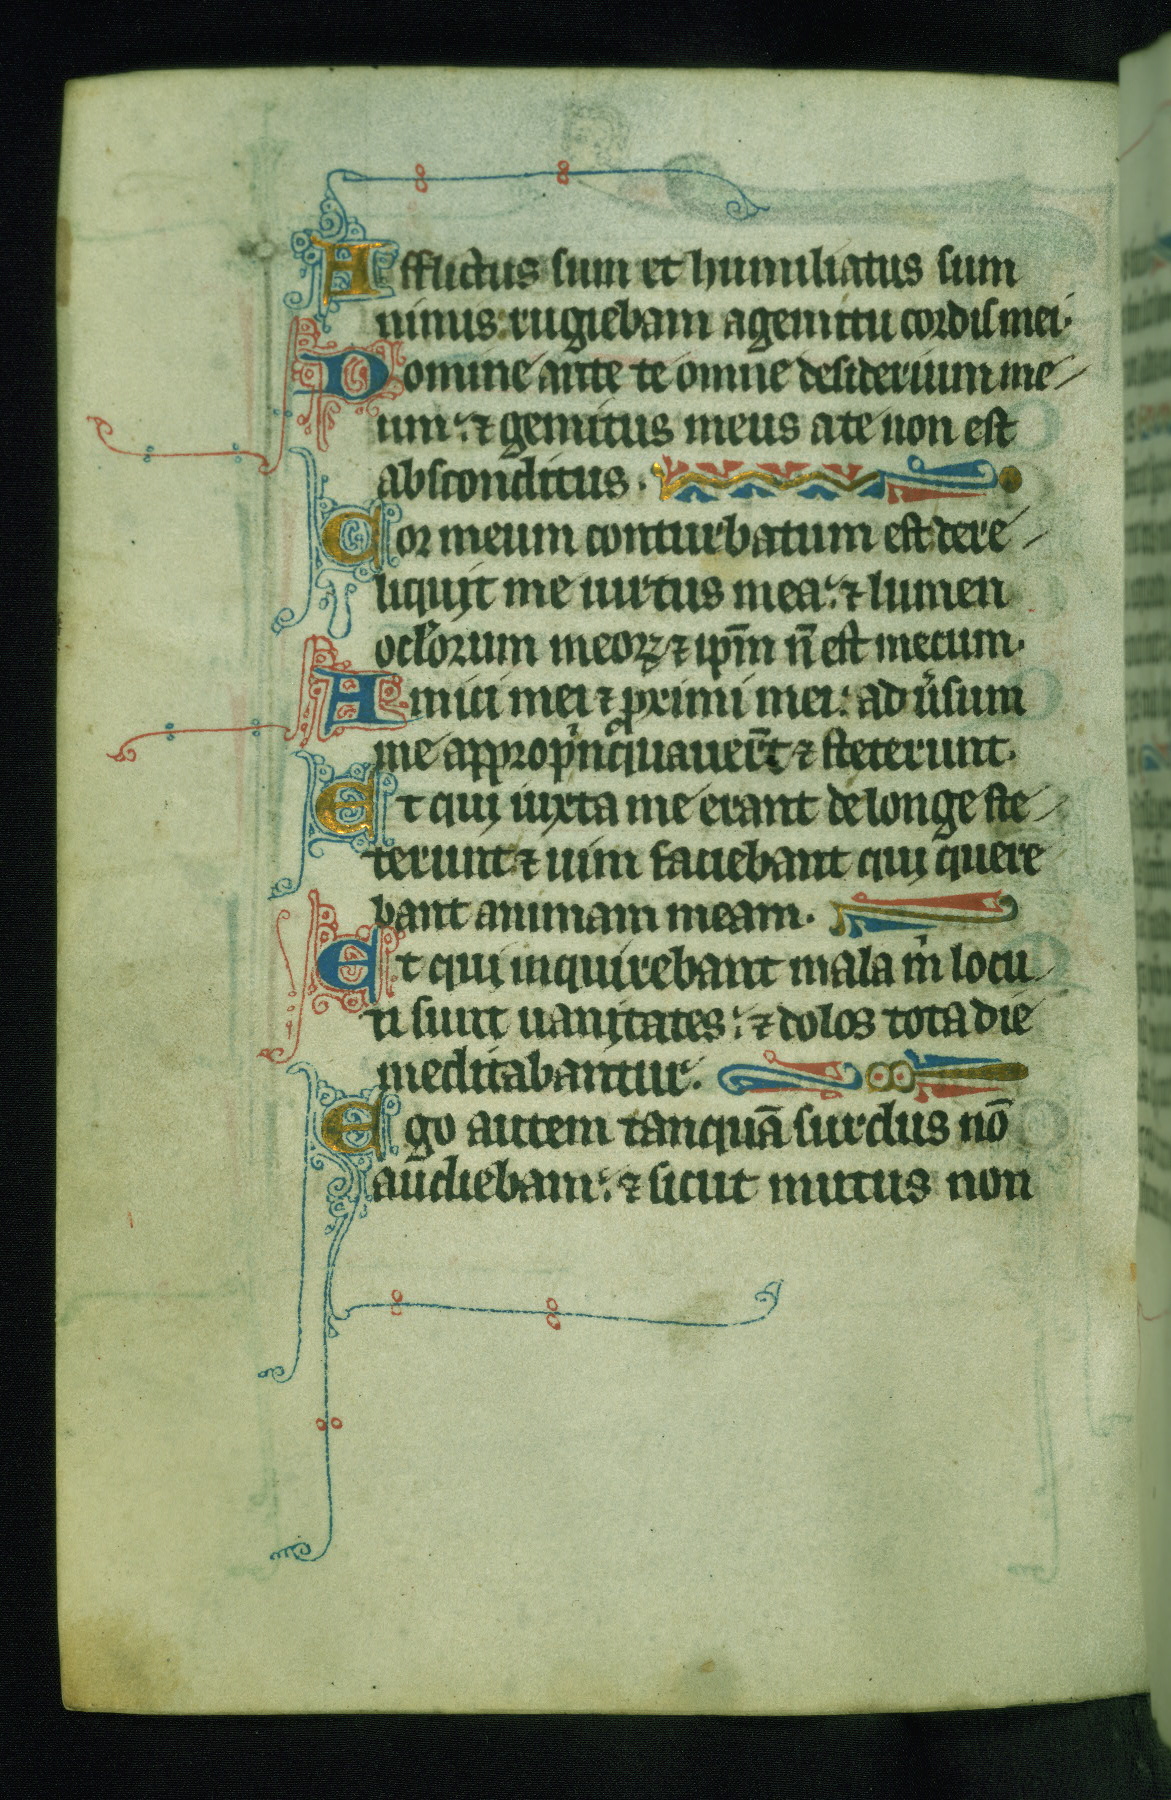 Afflictus sum et humiliatus sum
nimis: rugiebam agemitu cordis mei.
Domine ante te omne desiderium me
um: ⁊ gemitus meus ate non est
absconditus.
Cor meum conturbatum est dere
liquit me uirtus mea: ⁊ lumen
oclorum meoꝝ ⁊ ip̄m n̄ est mecum.
Amici mei ⁊ ꝓximi mei: adu̾sum
me appropinquauer̄t ⁊ steterunt.
Et qui iuxta me erant de longe ste
terunt ⁊ uim faciebant qui quere
bant animam meam.
Et qui inquirebant mala m̍ locu
ti sunt uanitates: ⁊ dolos tota die
meditabantur.
Ego autem tanquā surdus nō
audiebam: ⁊ sicut mutus non